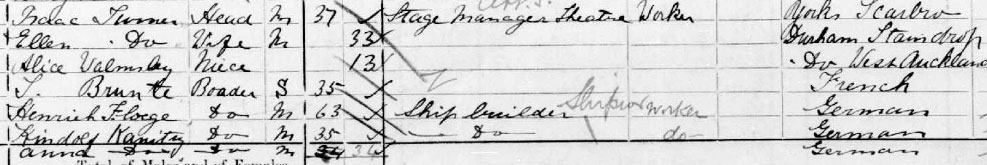 Isaac Turner Head M 37 Stage Manager Theatre Worker Yorks Scarbro
Ellen Do Wife M 33 Durham Staindrop
Alice Valmsley Niece 13 Do West Auckland
T. Brunte Boader S 35 French
Henrich Floege do M 63 Ship builder Shipwr worker German
Kindolf Kanitz do M 35 Do do German
Anna Do do M 34 German
Total of Males and of Females